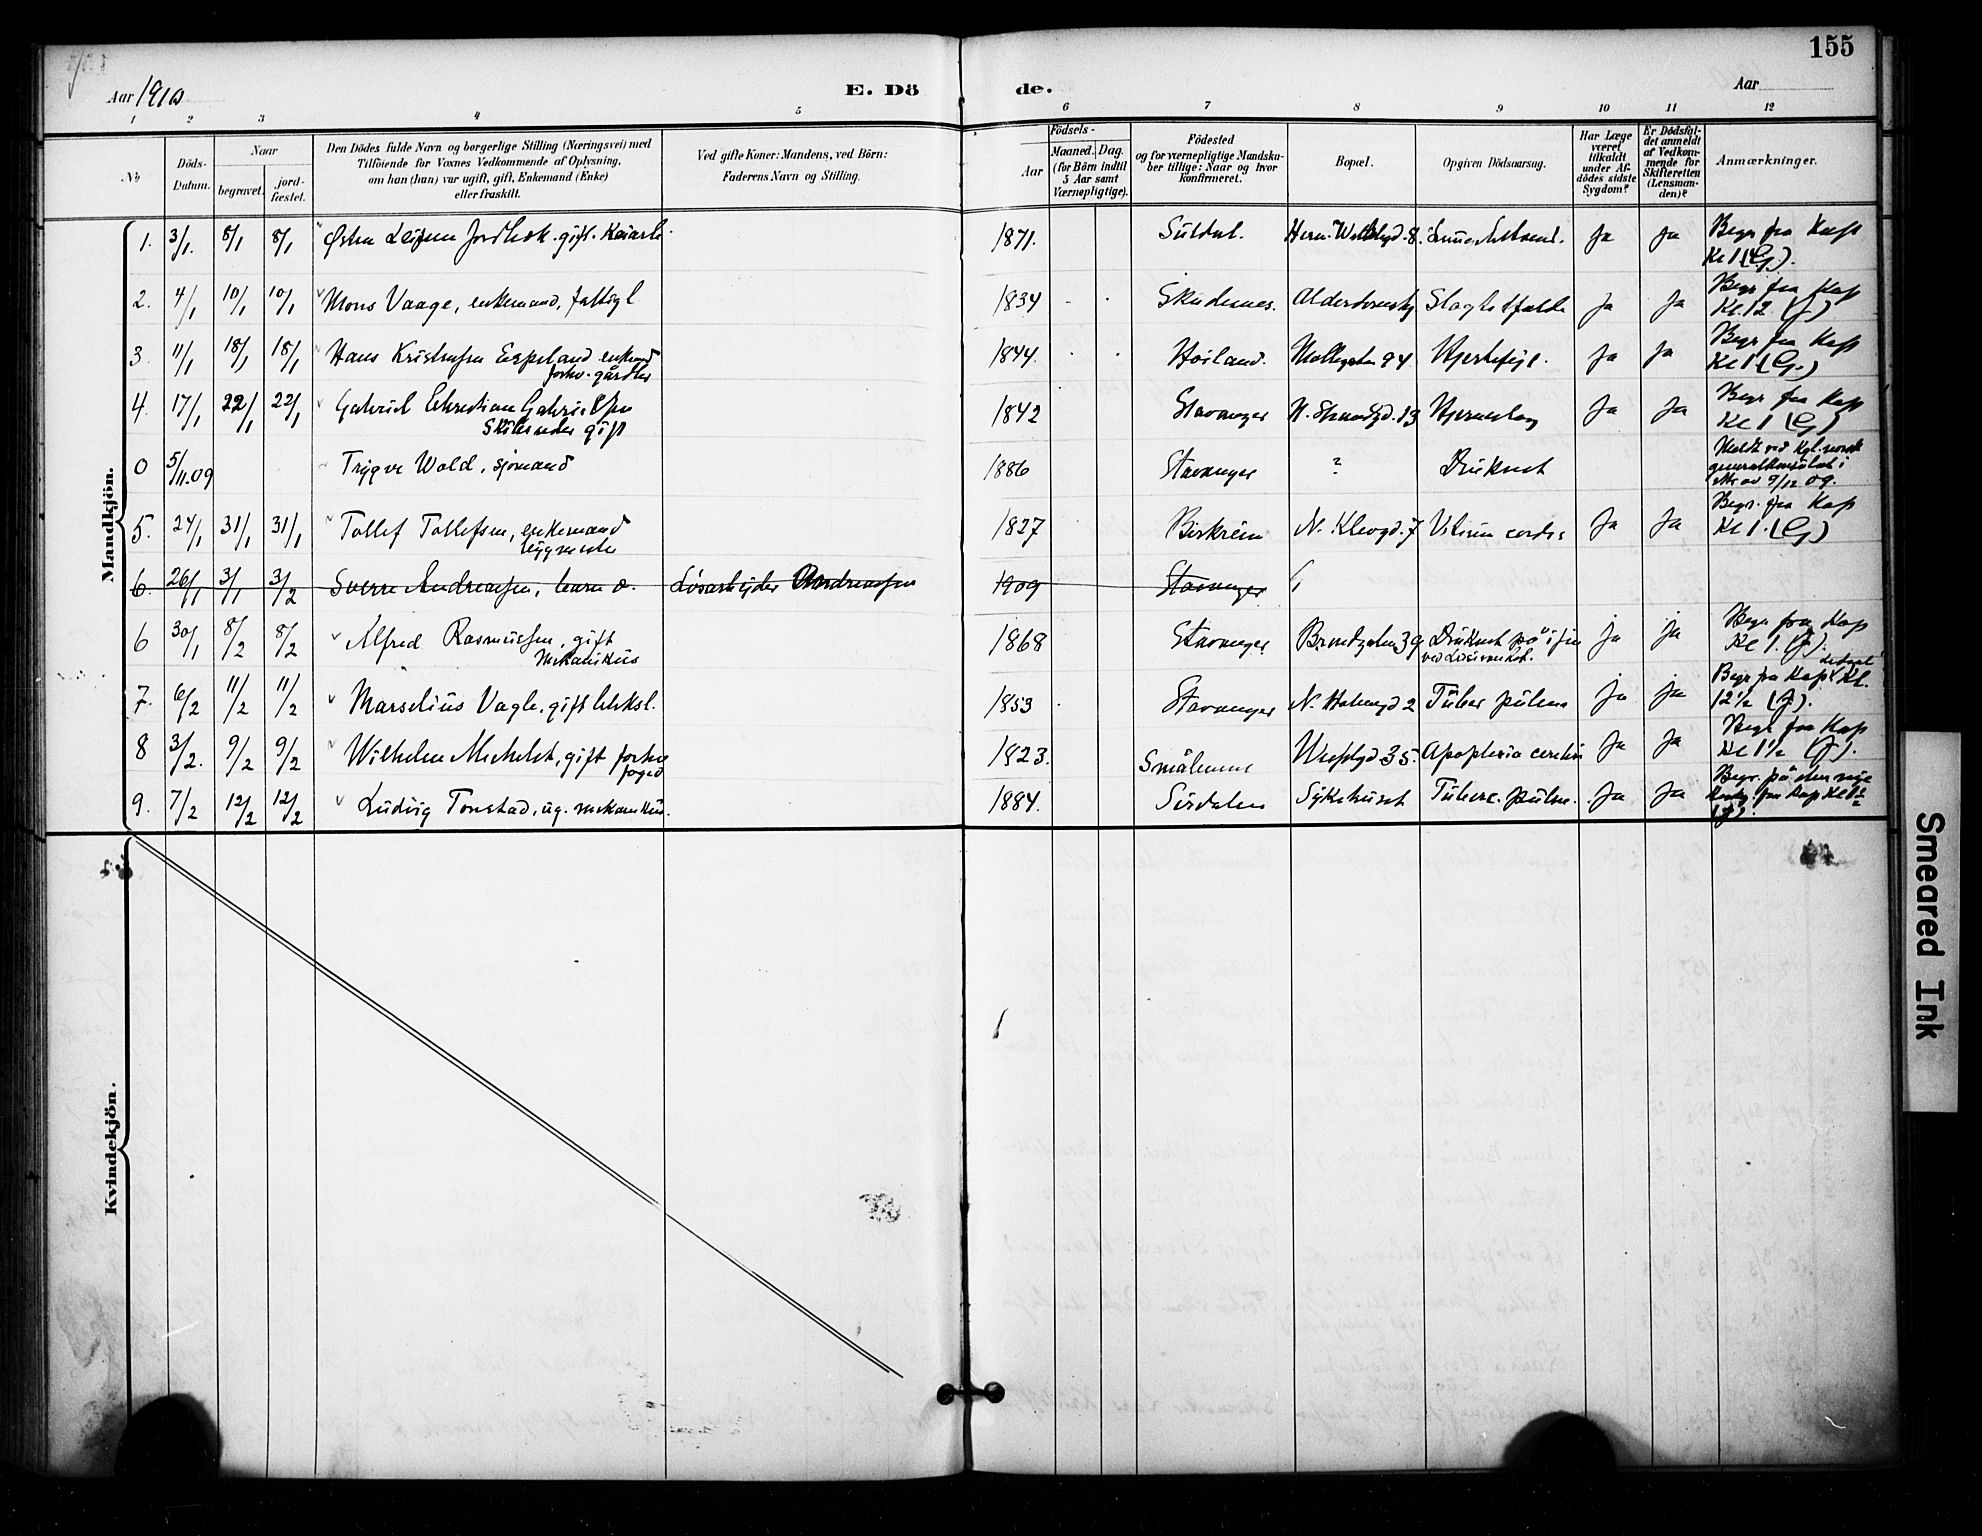 155
Aar 1910
E. Dö
de.
Aar
1 2 3 4 5 6 7 8 9 10 11 12
No
Döds-
Datum.
Naar
begravet.
jord-
fæstet.
Den Dödes fulde Navn og borgerlige Stilling (Næringsvei) med
Tilföiende for Voxnes Vedkommende af Oplysning,
om han (hun) var ugift, gift, Enkemand (Enke)
eller fraskilt.
Ved gifte Koner: Mandens, ved Börn:
Faderens Navn og Stilling.
Födsels-
Aar
Maaned.
Dag.
(for Börn indtil
5 Aar samt
Værnepligtige).
Födested
og for værnepligtige Mandska-
ber tillige: Naar og hvor
konfirmeret.
Bopæl.
Opgiven Dödsaarsag.
Har Læge
været
tilkaldt
under Af-
dödes sidste
Sygdom?
Er Dödsfal-
det anmeldt
af Vedkom-
mende for
Skifteretten
(Lensman-
den)?
Anmærkninger.
Mandkjön.
1. 3/1. 8/1 8/1 gift. 1871. Suldal. Ja Ja Begr fra Kap
Kl 1 (G).
2. 4/1 10/1 10/1 Mons Vaage, enkemand, fattigl 1834 Skudesnes. Ja Ja Begr fra Kap
Kl. 12. (J)
3. 11/1 18/1 18/1 Hans Kristensen Espeland enkemd
forhv. gårdbr 1844. Höiland. Møllegaten 94 Hjertefejl. Ja Ja Begr fra Kap
Kl 1 (G.)
4. 17/1 22/1 22/1 Gabriel Christian Gabrielsen
Skibsreder gift 1842 Stavanger N. Strandgd. 13 Hjerneslag Ja Ja Begr fra Kap
Kl 1 (G)
0 5/11.09 Trygve Wold, sjømand 1886 Stavanger ? Druknet Meldt ved Kgl. norsk
generalkonsulat i
9/12 09.
5. 24/1 31/1 31/1 Tollef Tollefsen, enkemand
1827 Birkreim N. Klevgd. 7 Vitium cordis Ja Ja Begr. fra Kap
Kl 1. (G)
6. 26/1 3/1 3/2 Sverre Andreassen, barn Løsarbejder Andreassen 1909 Stavanger
6 30/1 8/2 8/2 Alfred Rasmussen, gift
Mekanikus 1868 Stavanger 39 Druknet på
Ja Ja Begr fra Kap
Kl 1. (J).
7. 6/2 11/2 11/2 Marselius Vagle, gift 1853 Stavanger N. Holmegd 2 Tuber pulm Ja Ja Begr fra Kap Kl.
12½ (J).
8 3/2. 9/2 9/2 Wilhelm Michelet, gift forhv
foged 1823. Smålenene 35. Apoplexia cerebri Ja Ja Begr fra Kap
Kl 1½ (J).
9. 7/2 12/2 12/2 Ludvig Tonstad, ug. mekanikus. 1884. Sirdalen Sykehuset Tuberc. pulm. Ja Ja Begr. på den nye
fra Kap Kl
(J).
Kvindekjön.
Smeared Ink